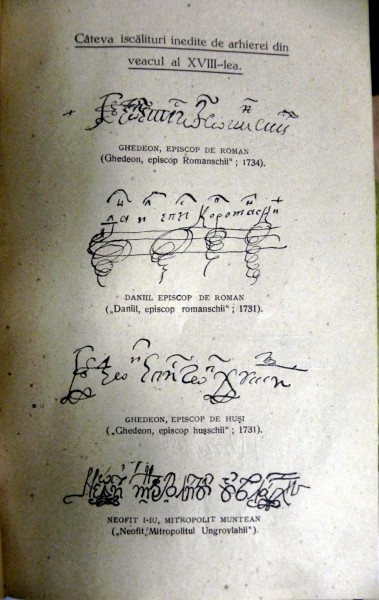 Câteva iscălituri inedite de arhierei din
veacul al XVIII-lea.
GHEDEON, EPISCOP DE ROMAN
(Ghedeon, episcop Romanschii“ ; 1734).
DANIIL EPISCOP DE ROMAN
(„Daniil, episcop romanschii“ ; 1731).
GHEDEON, EPISCOP DE HUȘI
(„Ghedeon, episcop hușschii“ ; 1731).
NEOFIT I-IU, MITROPOLIT MUNTEAN
(„Neofit Mitropolitul Ungrovlahii“).